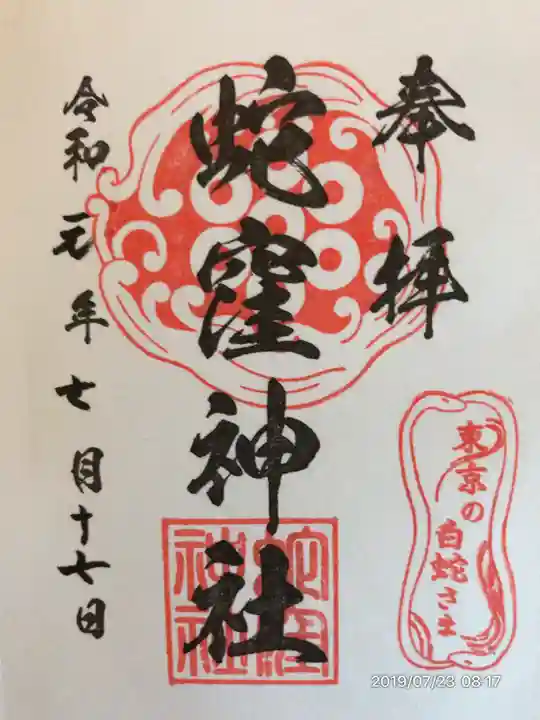 奉拝
東京の
白蛇さま
蛇窪神社
蛇窪
神社
令和元年七月十七日
2019/07/23 08:17